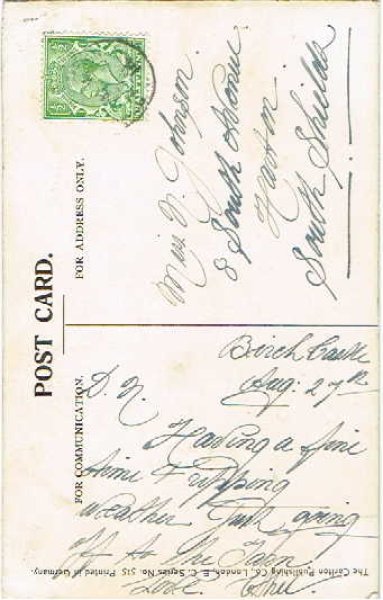 POST CARD.
FOR COMMUNICATION.
FOR ADDRESS ONLY.
Birch Castle
Aug: 27th
D. N.
Having a fine
time & ripping
weather Just going
off to the Tarn
Love Ethel
Miss N. Johnson.
8 South Avenue
Harton
South Shields
The Carlton Publishing Co., London, E. C. Series No. 515 Printed in Germany.